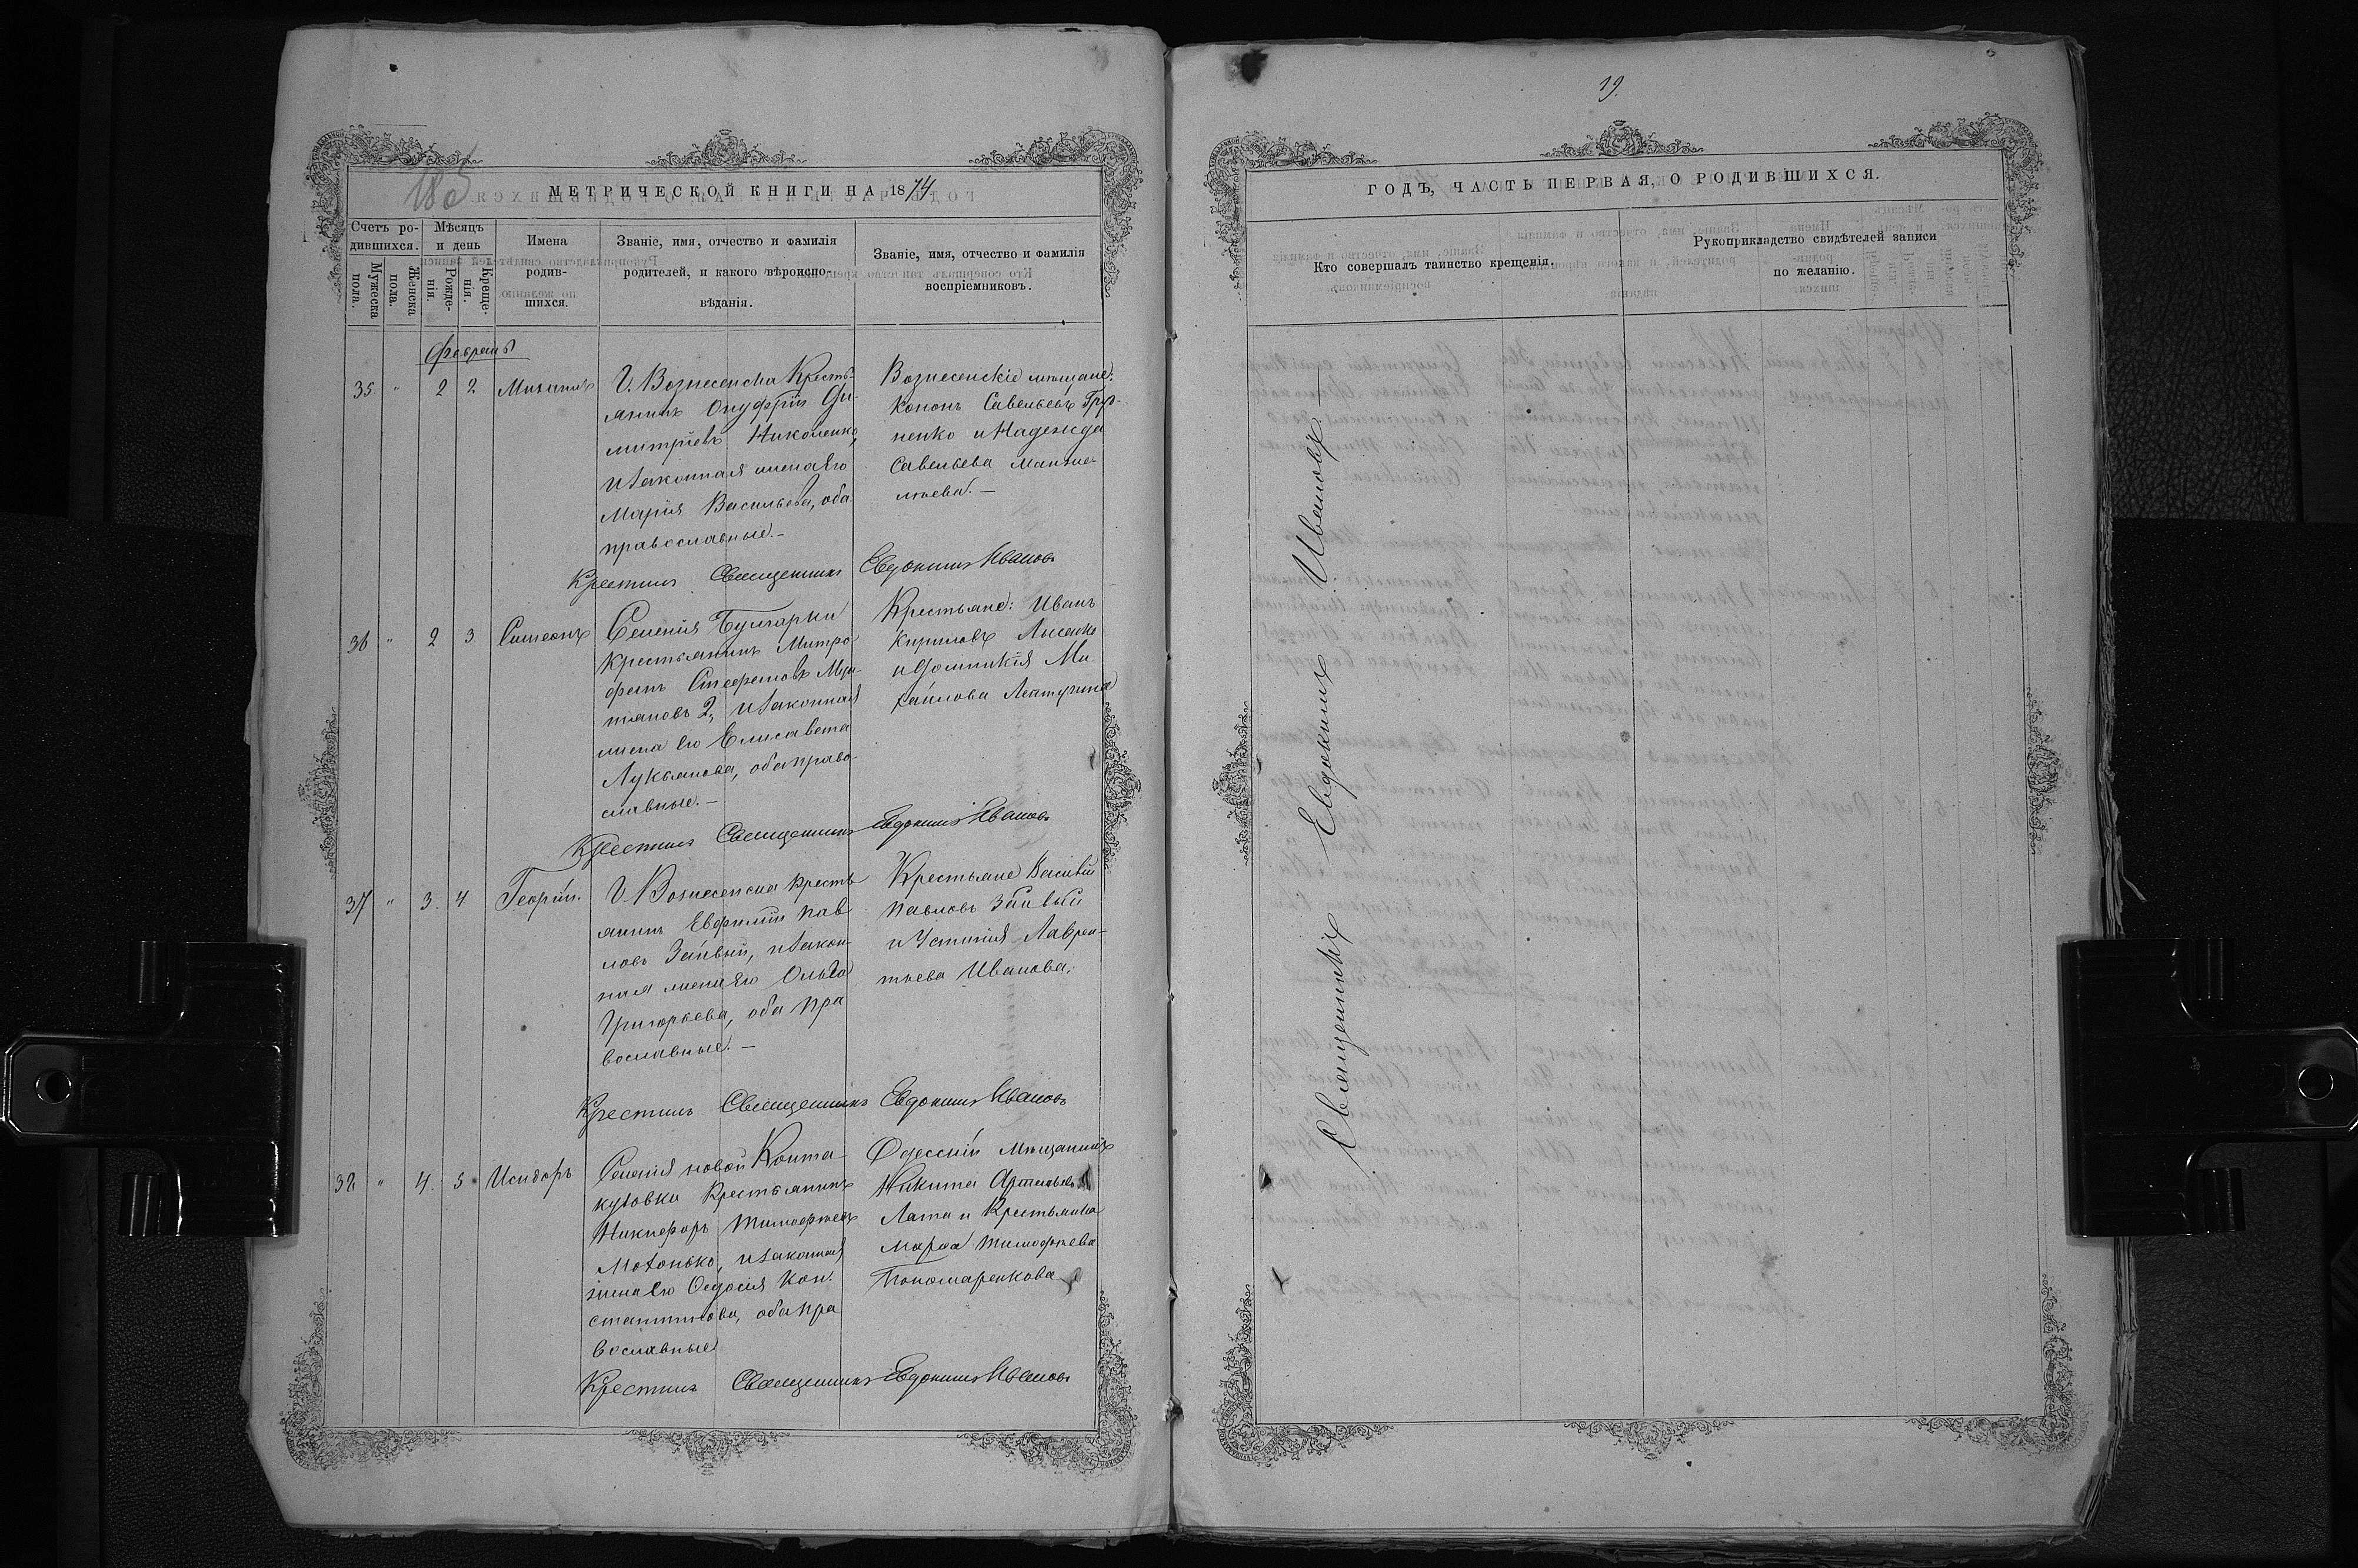 19.
МЕТРИЧЕСКОЙ КНИГИ НА 1874
Счетъ ро-
дившихся.
Мужеска
пола.
Женска
пола.
Мѣсяцъ
и день
Рожде-
нія.
Креще-
нія.
Имена
родив-
шихся.
Званіе, имя, отчество и фамилія
родителей, и какого вѣроиспо-
вѣданія.
Званіе, имя, отчество и фамилія
воспріемниковъ.
Февраль
35 " 2 2
Г. Вознесенска Кресть-
янинъ Онуфрій Ди-
митріевъ Николенко,
и законная жена его
Марія Васильева, оба
православные.-
Вознесенскіе мѣщане:
Кононъ Савельевъ
и Надежда
Савельева
Крестилъ Священникъ Евдокимъ Ивановъ
36 " 2 3 Симеонъ
Селенія Булгарки
крестьянинъ Митро-
фанъ Стефановъ
2й, и законная
жена его Елисавета
Лукьянова, оба право-
славные.-
Крестьяне: Иванъ
Кириловъ Лысенко
и Домникія Ми
хайлова
Крестилъ Священникъ Евдокимъ Ивановъ
37 " 3. 4 Георгій.
Г. Вознесенска кресть
янинъ Евфимій Пав
ловъ и закон-
ная жена его Ольга
Григорьева, оба пра
вославные.-
Крестьяне Василій
Павловъ
и Устинія Лаврен-
тьева Иванова.
Крестилъ Священникъ Евдокимъ Ивановъ
38 " 4. 5 Исидоръ
Селенія новой Конта-
кузовки Крестьянинъ
Никифоръ Тимофѣевъ
и законная
жена его Ѳеодосія Кон.
стантинова, оба пра
вославные
Одесскій Мѣщанинъ
Никита
Лата и Крестьянка
Марѳа Тимофѣева
Пономаренкова
Крестилъ Священникъ Евдокимъ Ивановъ
ГОДЪ, ЧАСТЬ ПЕРВАЯ, О РОДИВШИХСЯ.
Кто совершалъ таинство крещенія.
Рукоприкладство свидѣтелей записи
по желанію.
Священникъ Евдокимъ Ивановъ